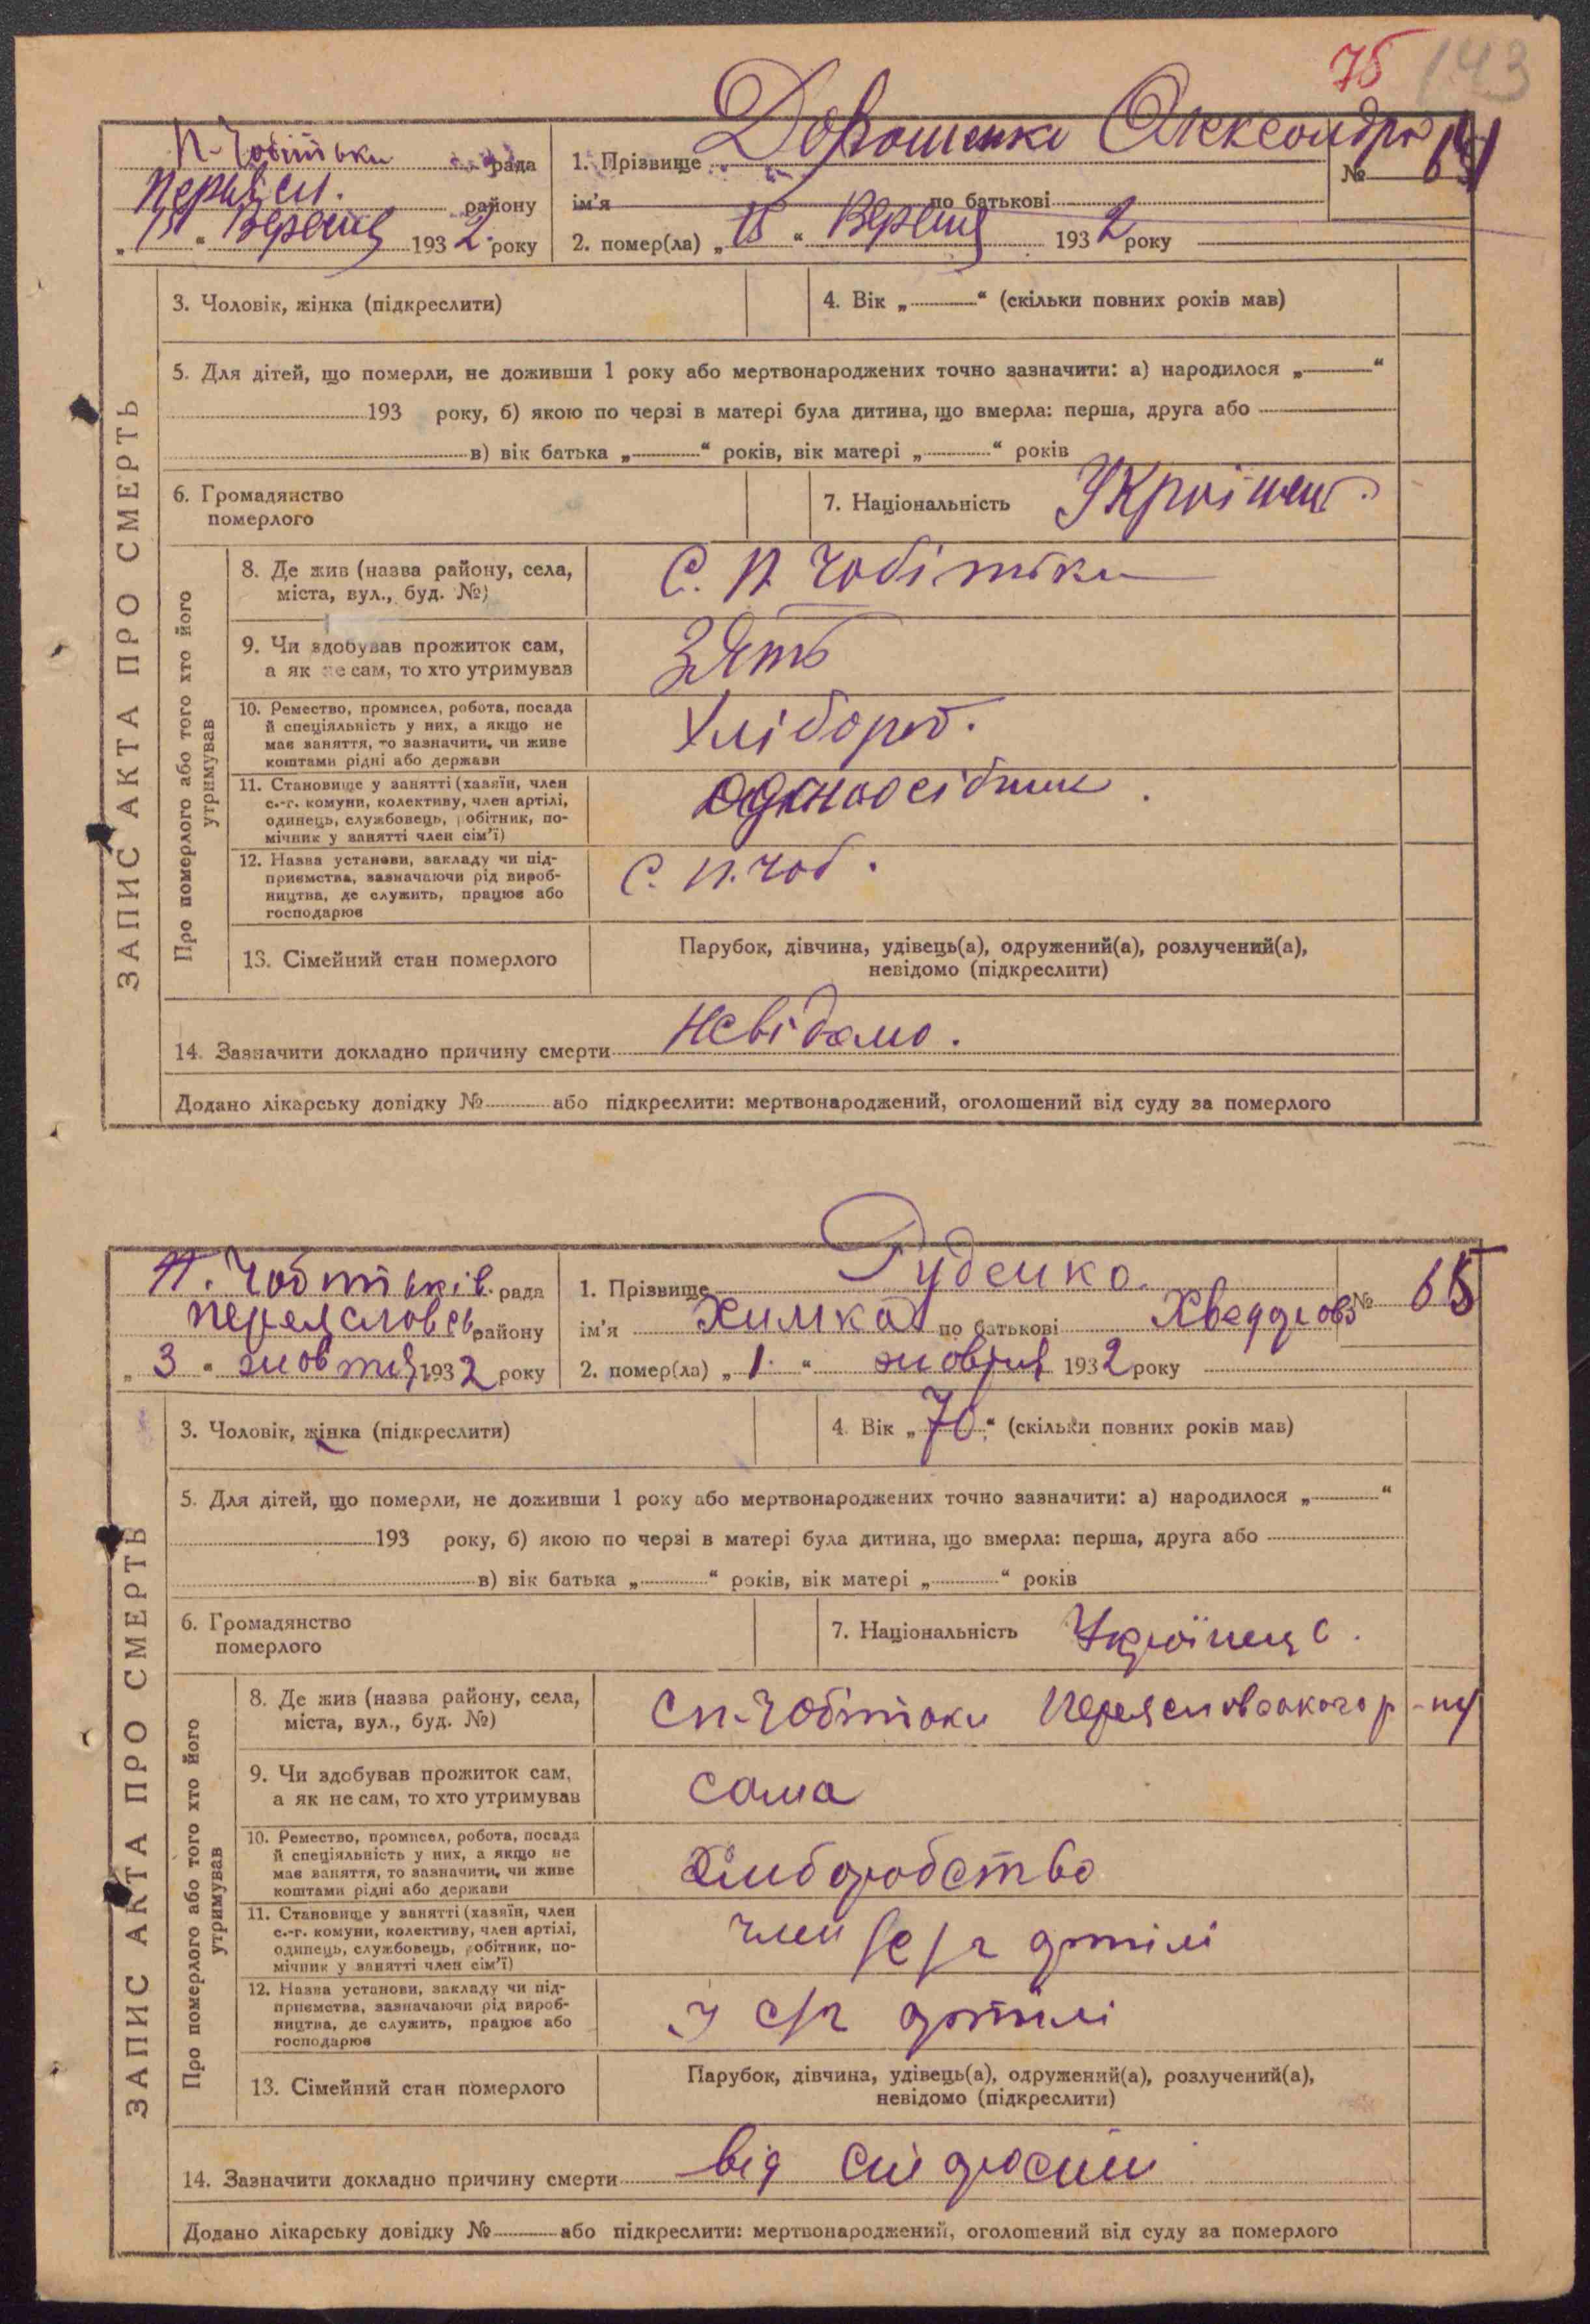 75 143
П-Чобітьки рада
Переясл. району
" Вересня 1932 року
1. Прізвище Дорошенко Олександра
№ 64
ім'я по батькові
2. помер(ла) „ 18 “ Вересня 1932 року
ЗАПИС АКТА ПРО СМЕРТЬ
3. Чоловік, жінка (підкреслити)
4. Вік „ “ (скільки повних років мав)
5. Для дітей, що померли, не доживши 1 року або мертвонароджених точно зазначити: а) народилося „ “
193 року, б) якою по черзі в матері була дитина, що вмерла: перша, друга або
в) вік батька „ “ років, вік матері „ “ років
6. Громадянство
померлого
7. Національність Українец.
Про померлого або того хто його
утримував
8. Де жив (назва району, села,
міста, вул., буд. №)
С. П. Чобітьки
9. Чи здобував прожиток сам,
а як не сам, то хто утримував
Зять
10. Ремество, промисел, робота, посада
й спеціяльність у них, а якщо не
має заняття, то зазначити, чи живе
коштами рідні або держави
Хлібороб.
11. Становище у занятті (хазяїн, член
с.-г. комуни, колективу, член артілі,
одинець, службовець, робітник, по-
мічник у занятті член сім'ї)
одноосібник.
12. Назва установи, закладу чи під-
приємства, зазначаючи рід вироб-
ництва, де служить, працює або
господарює
С. П. Чоб.
13. Сімейний стан померлого
Парубок, дівчина, удівець(а), одружений(а), розлучений(а),
невідомо (підкреслити)
14. Зазначити докладно причину смерти невідомо.
Додано лікарську довідку № або підкреслити: мертвонароджений, оголошений від суду за померлого
П. Чобітьків. рада
Переясловсь району
„ 3 “ жовтня 1932 року
1. Прізвище Руденко.
№ 65
ім'я Химка по батькові Хведдров
2. помер(ла) „ 1. “ жовтня 1932 року
ЗАПИС АКТА ПРО СМЕРТЬ
3. Чоловік, жінка (підкреслити)
4. Вік „ 70 “ (скільки повних років мав)
5. Для дітей, що померли, не доживши 1 року або мертвонароджених точно зазначити: а) народилося „ “
193 року, б) якою по черзі в матері була дитина, що вмерла: перша, друга або
в) вік батька „ “ років, вік матері „ “ років
6. Громадянство
померлого
7. Національність
Про померлого або того хто його
утримував
8. Де жив (назва району, села,
міста, вул., буд. №)
С П-Чобітьки Переясловського р-ну
9. Чи здобував прожиток сам,
а як не сам, то хто утримував
сама
10. Ремество, промисел, робота, посада
й спеціяльність у них, а якщо не
має заняття, то зазначити, чи живе
коштами рідні або держави
Хлиборобство
11. Становище у занятті (хазяїн, член
с.-г. комуни, колективу, член артілі,
одинець, службовець, робітник, по-
мічник у занятті член сім'ї)
член с/г артілі
12. Назва установи, закладу чи під-
приємства, зазначаючи рід вироб-
ництва, де служить, працює або
господарює
у с/г артилі
13. Сімейний стан померлого
Парубок, дівчина, удівець(а), одружений(а), розлучений(а),
невідомо (підкреслити)
14. Зазначити докладно причину смерти від
Додано лікарську довідку № або підкреслити: мертвонароджений, оголошений від суду за померлого